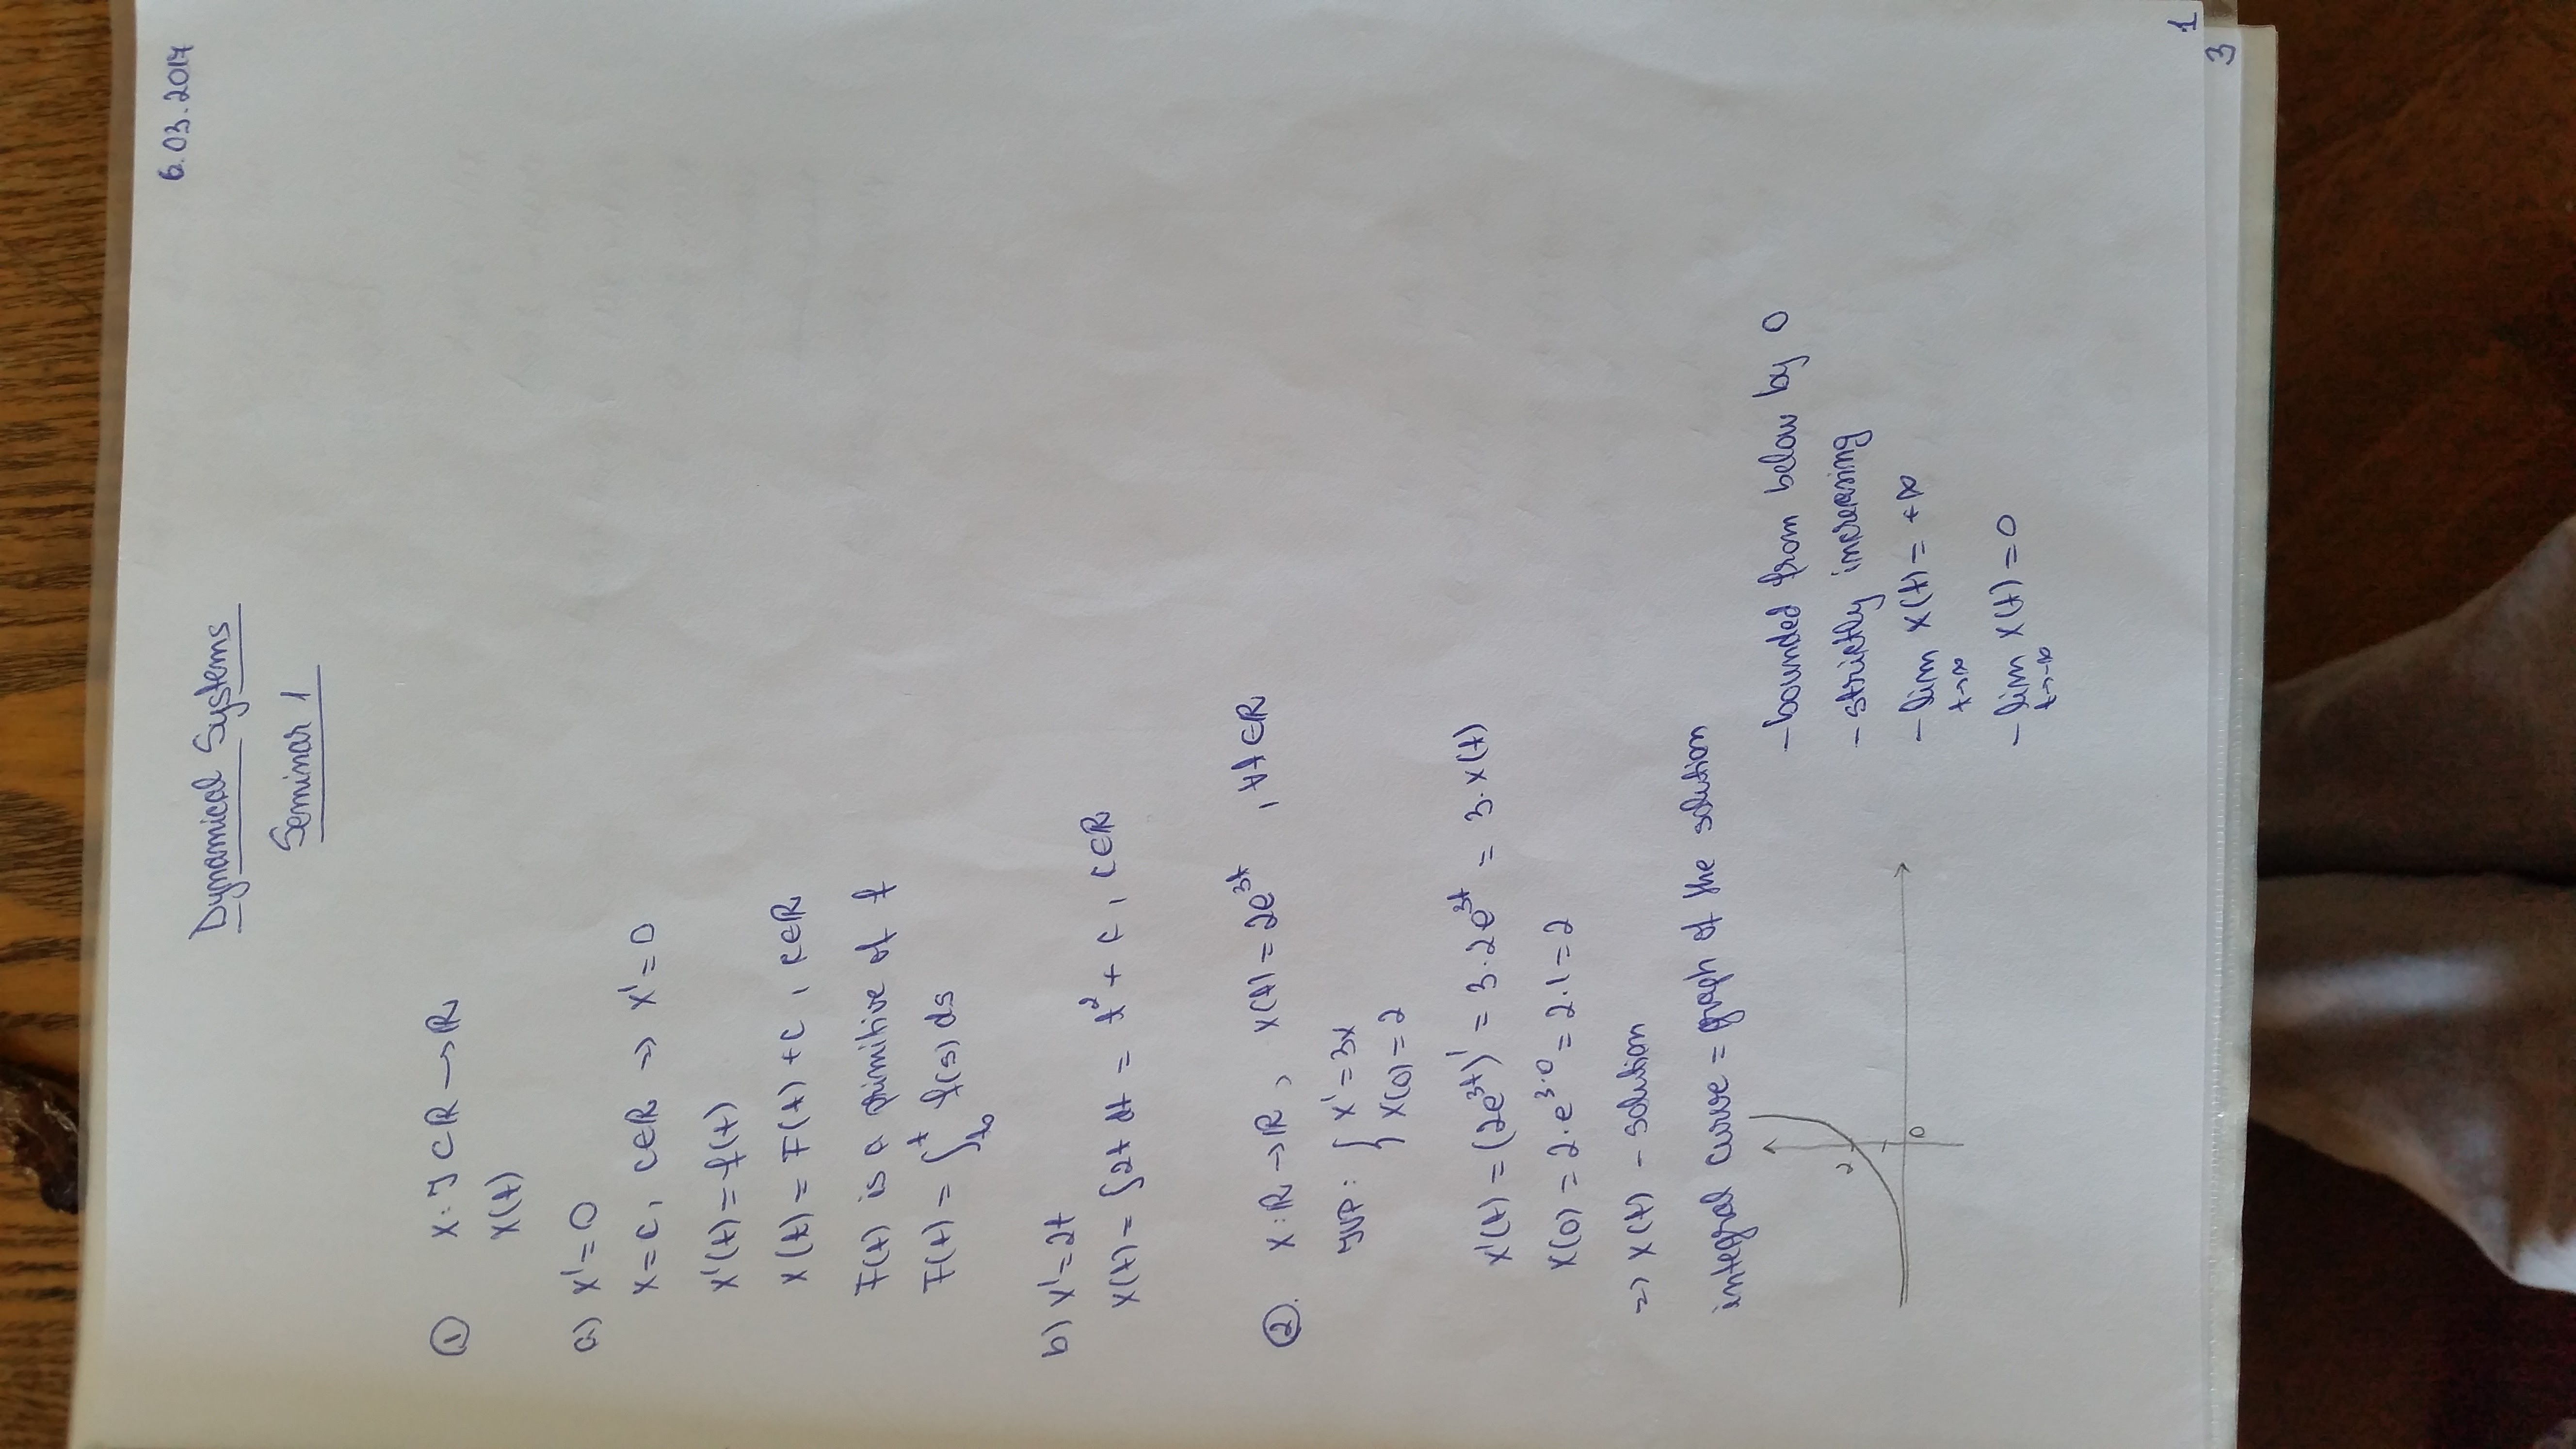 6.03.2017
Dynamical Systems
Seminar 1
① x: J ⊂ ℝ → ℝ
x(t)
a) x' = 0
x = c, c∈ℝ => x' = 0
x'(t) = f(t)
x(t) = F(t) + c, c∈ℝ
F(t) is a primitive of f
F(t) = ∫_{t₀}^{t} f(s) ds
b) x' = 2t
x(t) = ∫2t dt = t² + c, c∈ℝ
②. x: ℝ → ℝ, x(t) = 2e^{3t}, ∀t∈ℝ
IVP: { x' = 3x
x(0) = 2
x'(t) = (2e^{3t})' = 3·2e^{3t} = 3·x(t)
x(0) = 2·e^{3·0} = 2·1 = 2
=> x(t) - solution
integral curve = graph of the solution
2
0
- bounded from below by 0
- strictly increasing
- lim x(t) = +∞
t→∞
- lim x(t) = 0
t→-∞
1
3